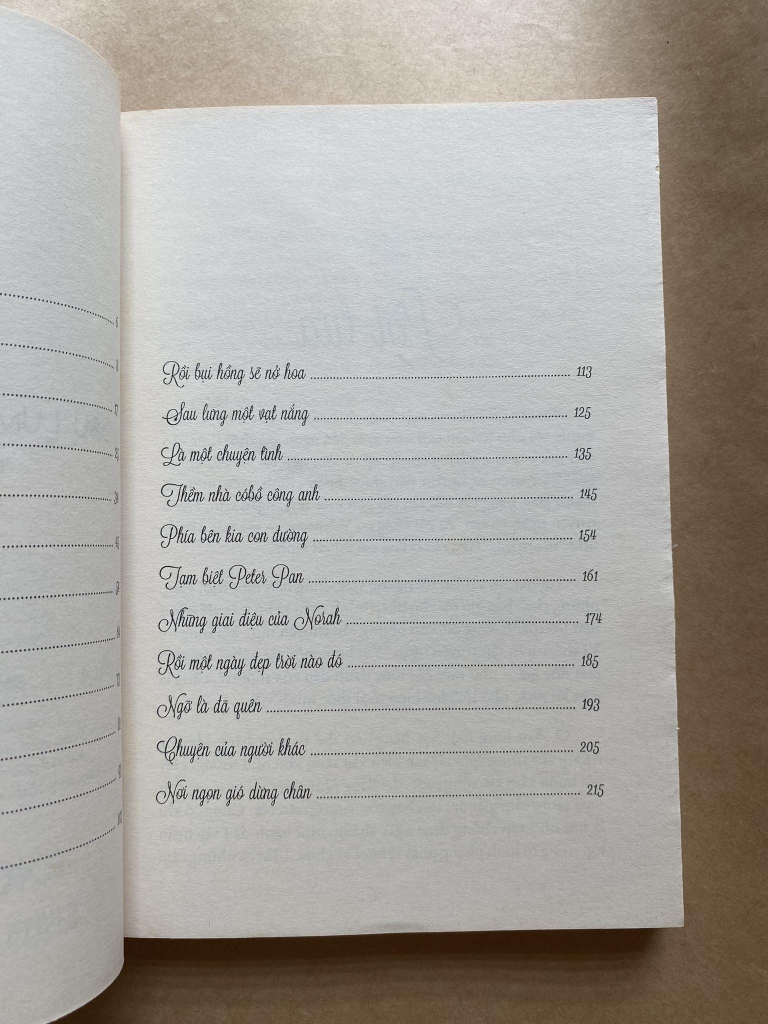 Rồi bụi hồng sẽ nở hoa ........ 113
Sau lưng một vạt nắng ........ 125
Là một chuyện tình ........ 135
Thềm nhà cóbồ công anh ........ 145
Phía bên kia con đường ........ 154
Tạm biệt Peter Pan ........ 161
Những giai điệu của Norah ........ 174
Rồi một ngày đẹp trời nào đó ........ 185
Ngỡ là đã quên ........ 193
Chuyện của người khác ........ 205
Nơi ngọn gió dừng chân ........ 215